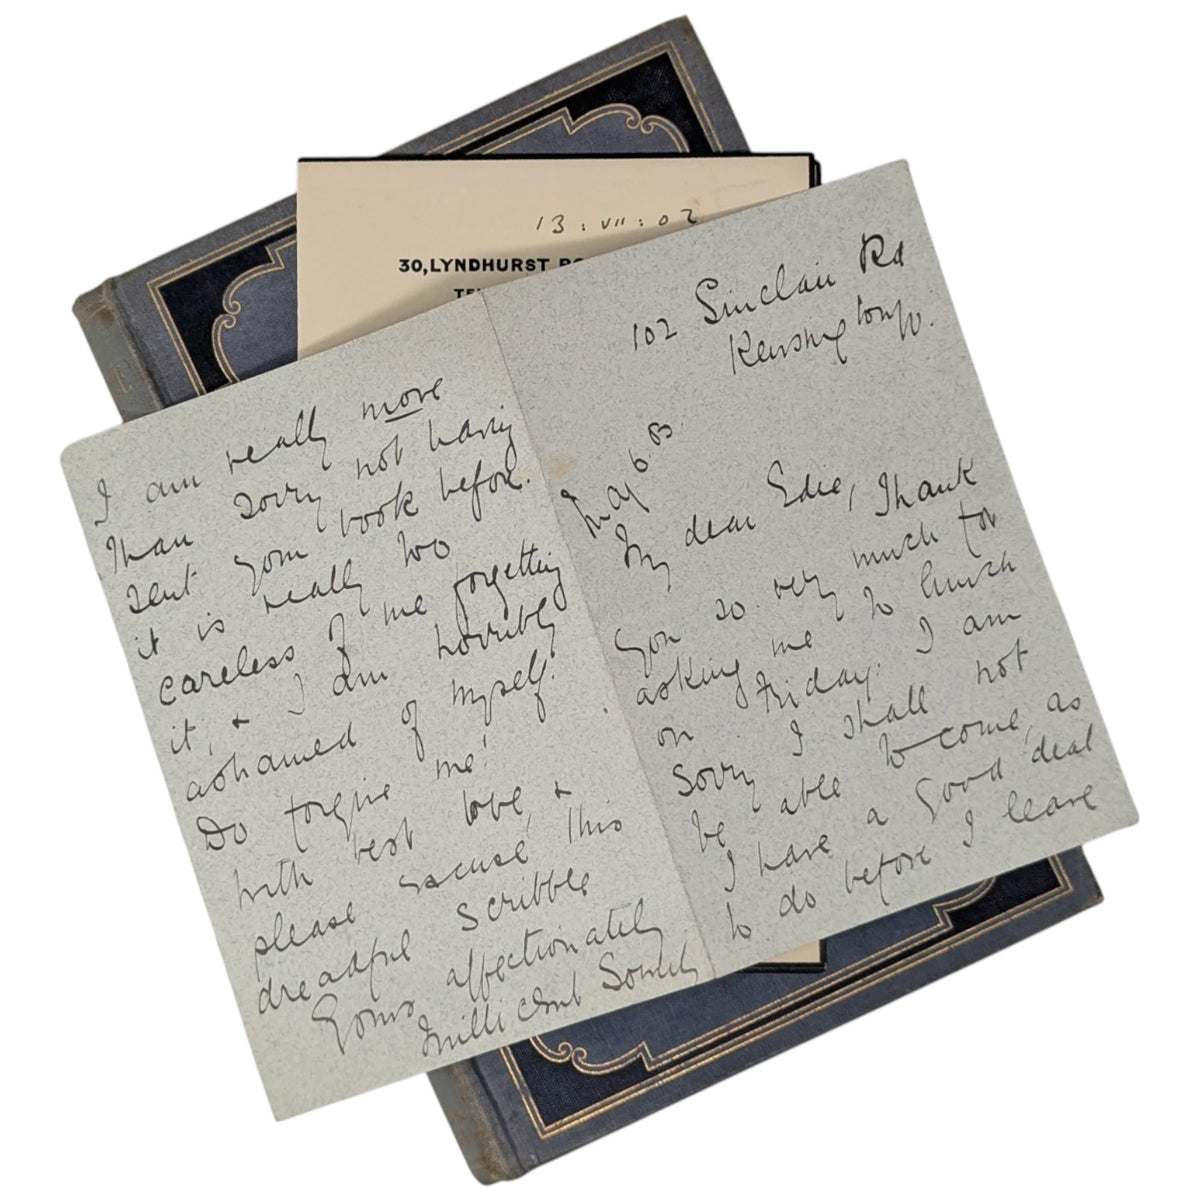 13 : VII : 02
30, LYNDHURST
102 Sinclair Rd
Kensington W.
May 6. 03
My dear Edie, Thank
you so very much for
asking me to lunch
on Friday. I am
sorry I shall not
be able to come, as
I have a good deal
to do before I leave
I am really more
than sorry not having
sent your book before.
it is really too
careless of me forgetting
it, & I am horribly
ashamed of myself.
Do forgive me!
With best love, &
please excuse this
dreadful scribble
Yours affectionately
Millicent Sowerby